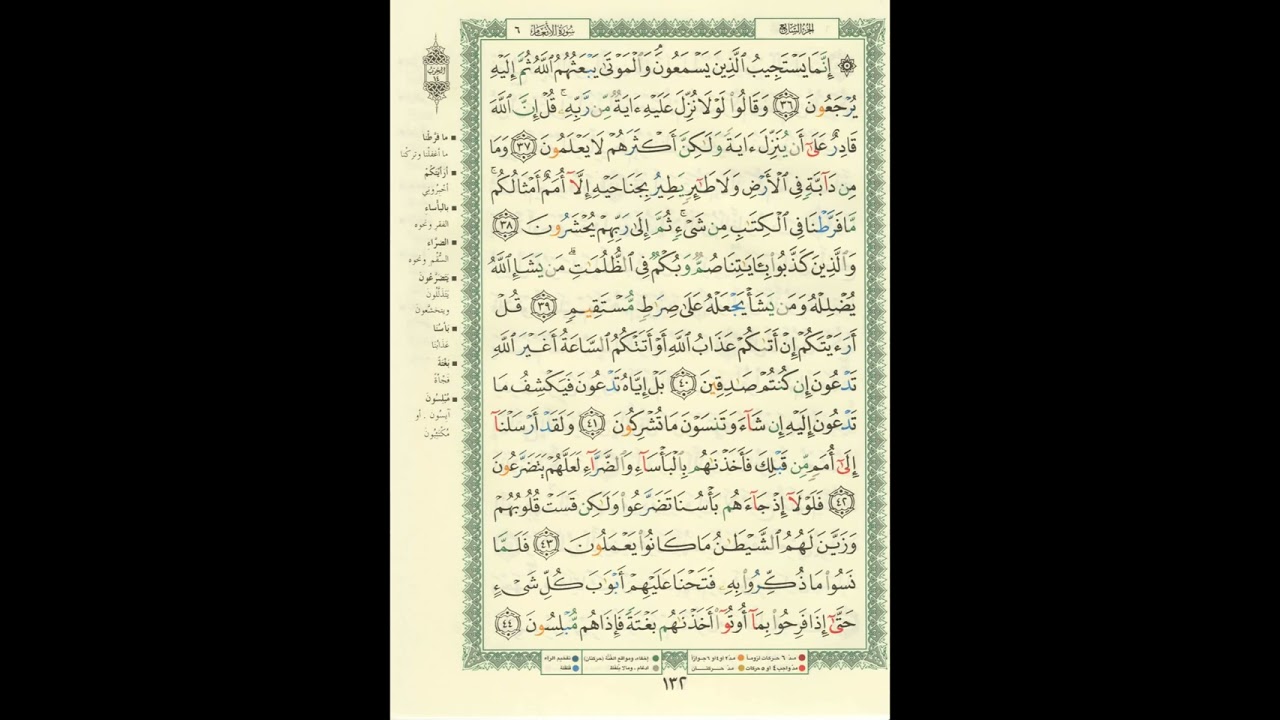 سورة الأنعام ٦
الجزء السابع
۞ إِنَّمَا يَسْتَجِيبُ ٱلَّذِينَ يَسْمَعُونَ ۘ وَٱلْمَوْتَىٰ يَبْعَثُهُمُ ٱللَّهُ ثُمَّ إِلَيْهِ
يُرْجَعُونَ ٣٦ وَقَالُوا۟ لَوْلَا نُزِّلَ عَلَيْهِ ءَايَةٌ مِّن رَّبِّهِۦ ۚ قُلْ إِنَّ ٱللَّهَ
قَادِرٌ عَلَىٰٓ أَن يُنَزِّلَ ءَايَةً وَلَٰكِنَّ أَكْثَرَهُمْ لَا يَعْلَمُونَ ٣٧ وَمَا
مِن دَآبَّةٍ فِى ٱلْأَرْضِ وَلَا طَٰٓئِرٍ يَطِيرُ بِجَنَاحَيْهِ إِلَّآ أُمَمٌ أَمْثَالُكُم ۚ
مَّا فَرَّطْنَا فِى ٱلْكِتَٰبِ مِن شَىْءٍ ۚ ثُمَّ إِلَىٰ رَبِّهِمْ يُحْشَرُونَ ٣٨
وَٱلَّذِينَ كَذَّبُوا۟ بِـَٔايَٰتِنَا صُمٌّ وَبُكْمٌ فِى ٱلظُّلُمَٰتِ ۗ مَن يَشَإِ ٱللَّهُ
يُضْلِلْهُ وَمَن يَشَأْ يَجْعَلْهُ عَلَىٰ صِرَٰطٍ مُّسْتَقِيمٍ ٣٩ قُلْ
أَرَءَيْتَكُمْ إِنْ أَتَىٰكُمْ عَذَابُ ٱللَّهِ أَوْ أَتَتْكُمُ ٱلسَّاعَةُ أَغَيْرَ ٱللَّهِ
تَدْعُونَ إِن كُنتُمْ صَٰدِقِينَ ٤٠ بَلْ إِيَّاهُ تَدْعُونَ فَيَكْشِفُ مَا
تَدْعُونَ إِلَيْهِ إِن شَآءَ وَتَنسَوْنَ مَا تُشْرِكُونَ ٤١ وَلَقَدْ أَرْسَلْنَآ
إِلَىٰٓ أُمَمٍ مِّن قَبْلِكَ فَأَخَذْنَٰهُم بِٱلْبَأْسَآءِ وَٱلضَّرَّآءِ لَعَلَّهُمْ يَتَضَرَّعُونَ
٤٢ فَلَوْلَآ إِذْ جَآءَهُم بَأْسُنَا تَضَرَّعُوا۟ وَلَٰكِن قَسَتْ قُلُوبُهُمْ
وَزَيَّنَ لَهُمُ ٱلشَّيْطَٰنُ مَا كَانُوا۟ يَعْمَلُونَ ٤٣ فَلَمَّا
نَسُوا۟ مَا ذُكِّرُوا۟ بِهِۦ فَتَحْنَا عَلَيْهِمْ أَبْوَٰبَ كُلِّ شَىْءٍ
حَتَّىٰٓ إِذَا فَرِحُوا۟ بِمَآ أُوتُوٓا۟ أَخَذْنَٰهُم بَغْتَةً فَإِذَا هُم مُّبْلِسُونَ ٤٤
الحزب
١٤
■ ما فرّطنا
ما أغفلنا وتركنا
■ أرأيتكم
أخبروني
■ بالبأساء
الفقر ونحوه
■ الضرّاء
السّقم ونحوه
■ يتضرّعون
يتذلّلون
ويتخشّعون
■ بأسنا
عذابنا
■ بغتة
فجأة
■ مبلسون
آيسون . أو
مكتئبون
مدّ ٦ حركات لزوماً
مدّ ٢ أو ٤ أو ٦ جوازاً
مدّ واجب ٤ أو ٥ حركات
مدّ حركتان
إخفاء، ومواقع الغنّة (حركتان)
ادغام ، ومالا يلفظ
تفخيم الراء
قلقلة
١٣٢